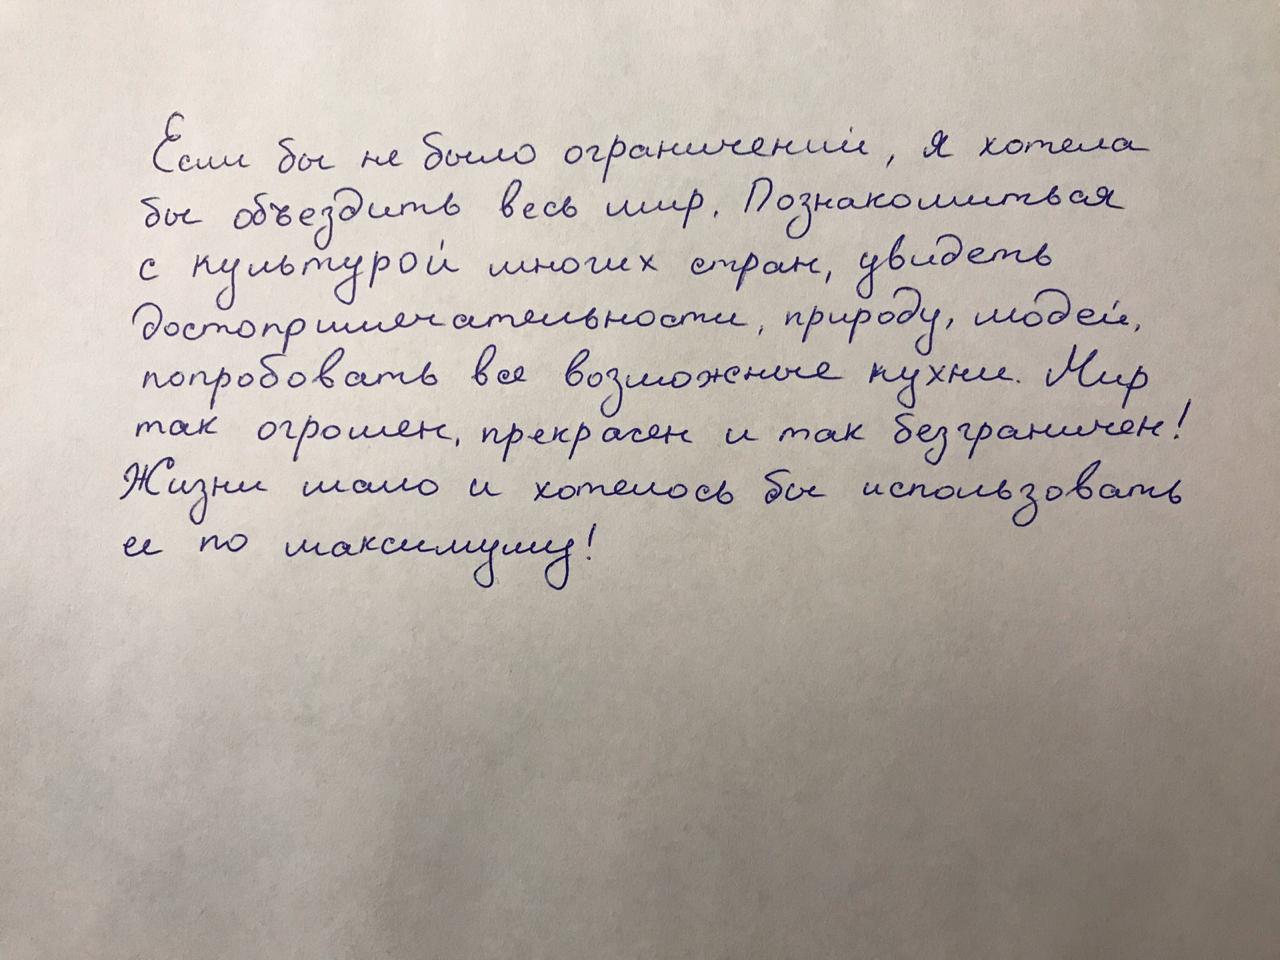 Если бы не было ограничений, я хотела
бы объездить весь мир. Познакомиться
с культурой многих стран, увидеть
достопримечательности, природу, людей,
попробовать все возможные кухни. Мир
так огромен, прекрасен и так безграничен!
Жизни мало и хотелось бы использовать
ее по максимуму!